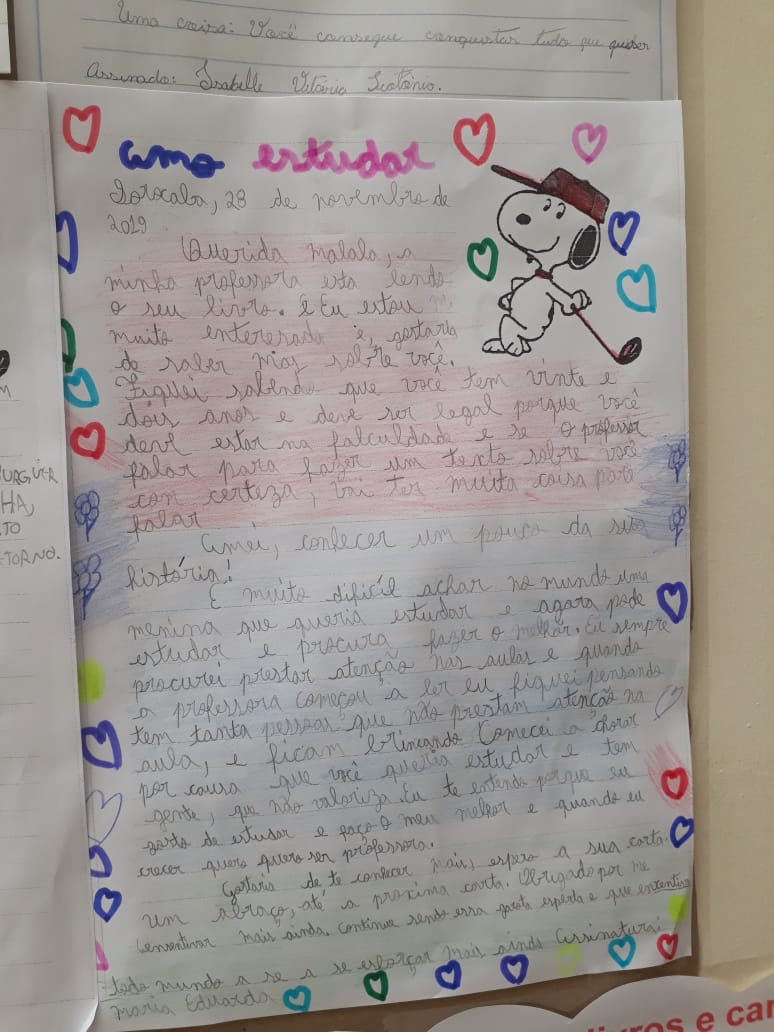 Uma coisa: Você consegue conquistar tudo que quiser
Assinado: Isabelle Vitória
amo estudar
Sorocaba, 28 de novembro de
2019
Querida malala, a
minha professora esta lendo
o seu livro. E Eu estou
muito enteresada e, gostaria
de saber mas sobre você.
Fiquei sabendo que você tem vinte e
dois anos e deve ser legal porque você
deve estar na falculdade e se o professor
falar para fazer um texto sobre você
com certeza, vai ter muita coisa para
falar
Amei, conhecer um pouco da sua
história!
É muito difícil achar no mundo uma
menina que queria estudar e agora pode
estudar e procura fazer o melhor. Eu sempre
procurei prestar atenção nas aulas e quando
a professora começou a ler eu fiquei pensando
tem tanta pessoas que não prestam atenção na
aula, e ficam brincando Comecei a chorar
por causa que você queria estudar e tem
gente, que não valoriza. Eu te entendo porque eu
gosto de estudar e faço o meu melhor e quando eu
crecer quero quero ser professora.
Gostaria de te conhecer mais, espero a sua carta.
um abraço, até a proxima carta. Obrigado por me
encentivar mais ainda. Continue sendo essa garota esperta e que encentiva
todo mundo a se a se esforçar mais ainda Assinatura:
Maria Eduarda
URGUER
HA,
TO
TORNO.
livros e car